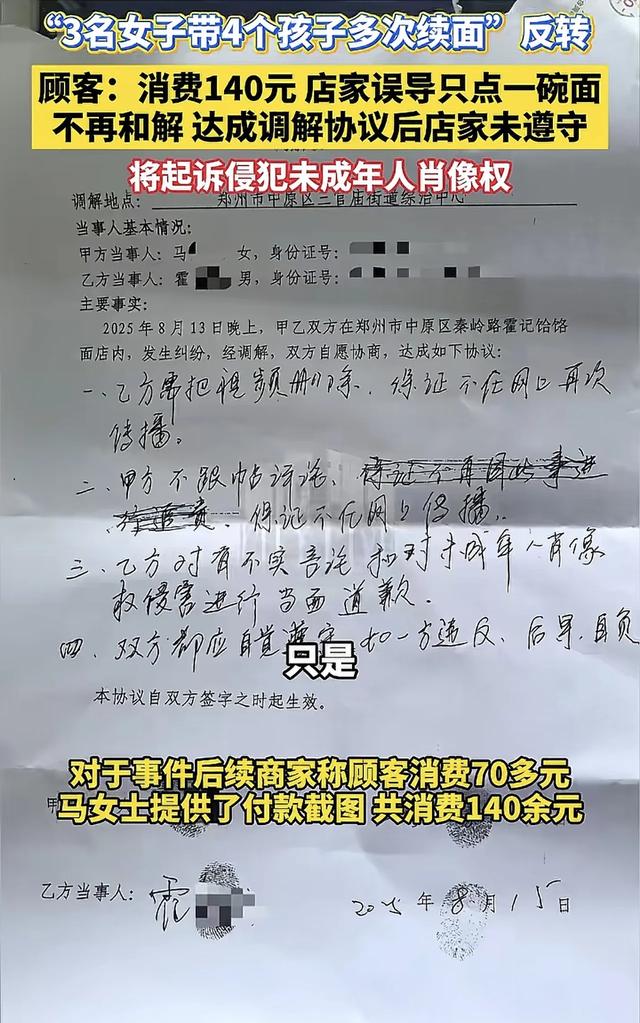 “3名女子带4个孩子多次续面”反转
顾客：消费140元 店家误导只点一碗面
不再和解 达成调解协议后店家未遵守
将起诉侵犯未成年人肖像权
调解地点： 郑州市中原区三官庙街道综治中心
当事人基本情况：
甲方当事人：马 女，身份证号：
乙方当事人：霍 男，身份证号：
主要事实：
2025年8月13日晚上，甲乙双方在郑州市中原区秦岭路霍记饸饹
面店内，发生纠纷，经调解，双方自愿协商，达成如下协议：
一、乙方需把视频删除．保证不在网上再次
传播。
二、甲方不跟帖评论、
保证不在网上传播。
三、乙方对有不实言论和对未成年人肖像
权侵害进行当面道歉．
四．双方都应自觉遵守 如一方违反、后果自负
只是
本协议自双方签字之时起生效。
对于事件后续商家称顾客消费70多元
马女士提供了付款截图 共消费140余元
甲
乙方当事人：霍
2025年8月15日